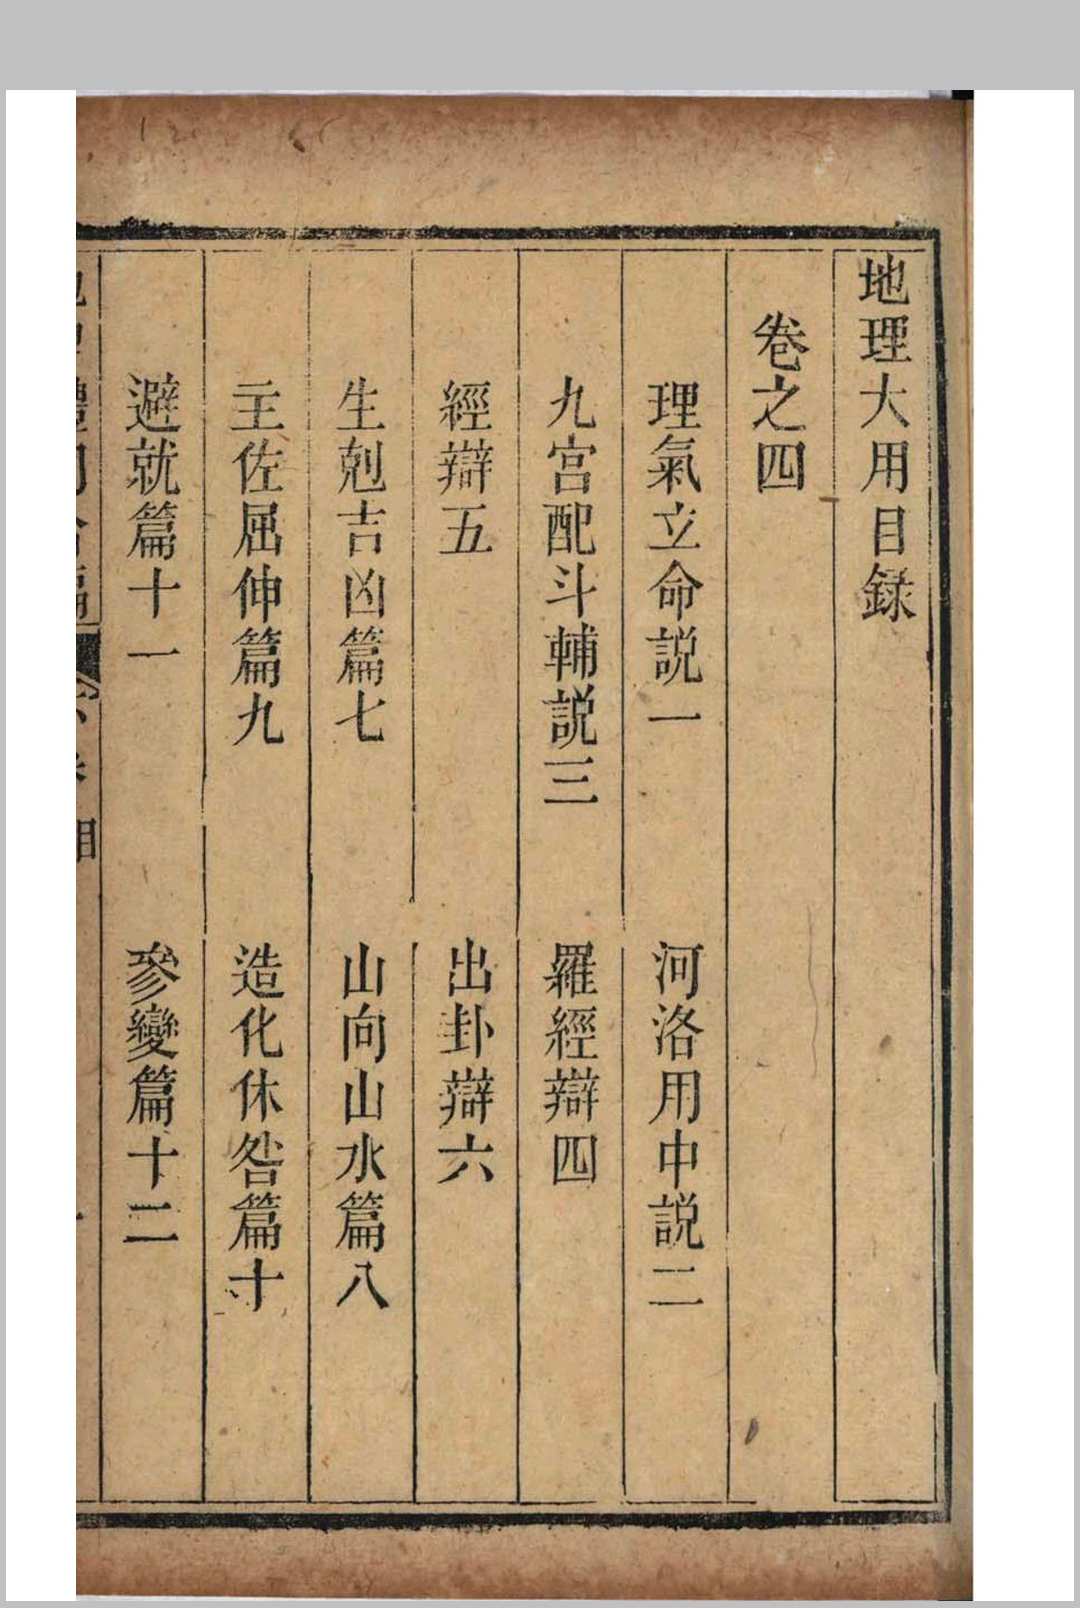 地理大用目錄
卷之四
理氣立命説一　河洛用中説二
九宮配斗輔説三　羅經辯四
經辯五　出卦辯六
生剋吉凶篇七　山向山水篇八
主佐屈伸篇九　造化休咎篇十
避就篇十一　參變篇十二